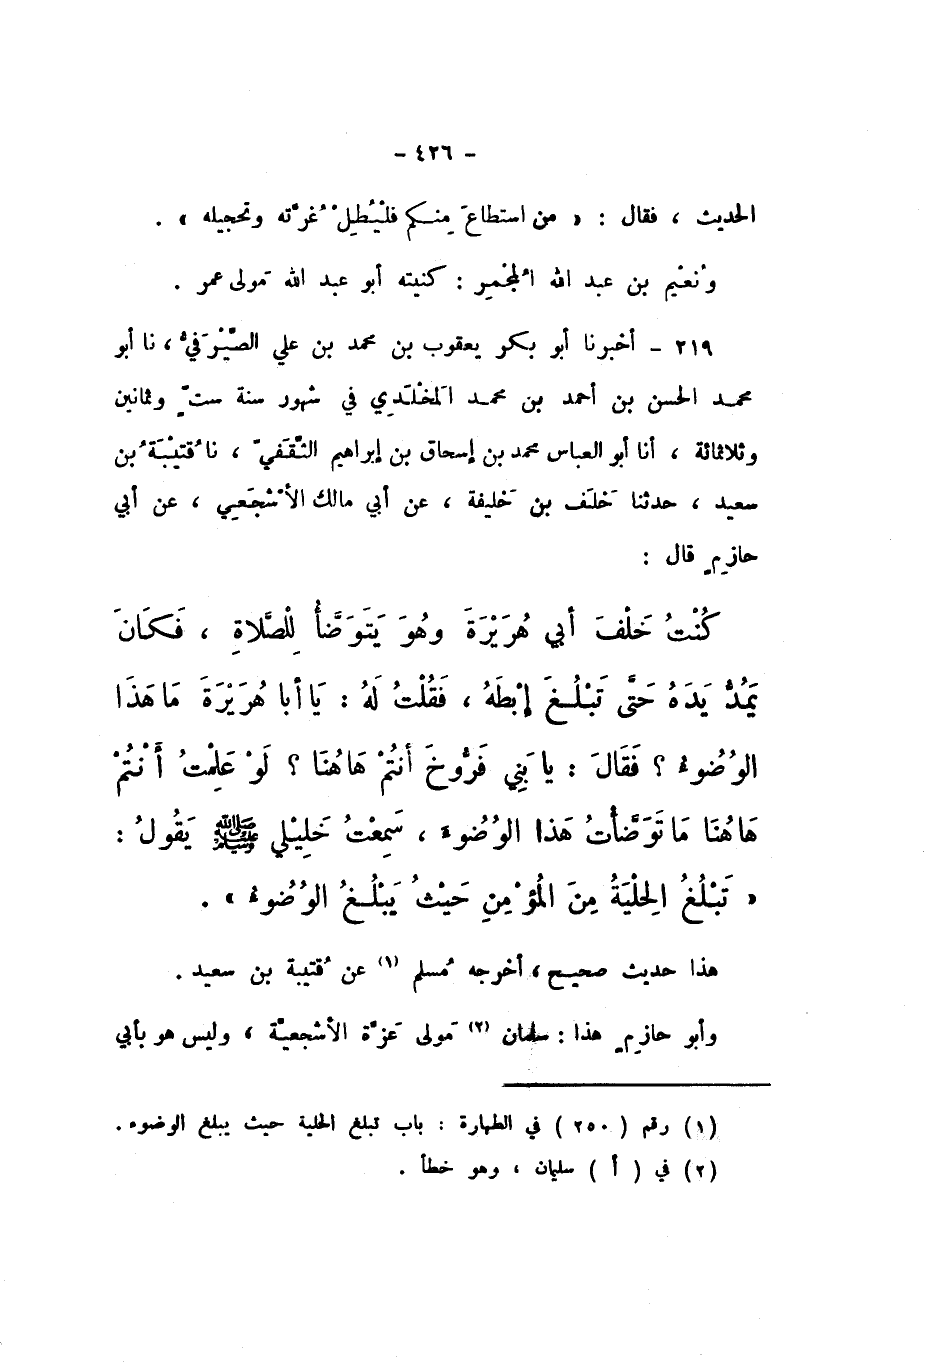 - ٤٢٦ -
الحديث ، فقال : « من استطاعَ مِنكم فلْيُطِلْ غُرَّته وتحجيله » .
ونُعَيْم بن عبد الله المُجْمِر : كنيته أبو عبد الله مَولى عمر .
٢١٩ - أخبرنا أبو بكر يعقوب بن محمد بن علي الصَّيْرَفيُّ ، نا أبو
محمد الحسن بن أحمد بن محمد المَخْلَدِي في شهور سنة ستٍّ وثمانين
وثلاثمائة ، أنا أبو العباس محمد بن إسحاق بن إبراهيم الثَّقَفيّ ، نا قُتيْبَةُ بن
سعيد ، حدثنا خَلَف بن خَليفة ، عن أبي مالك الأشْجَعي ، عن أبي
حازِمٍ قال :
كُنْتُ خَلْفَ أبي هُرَيْرَةَ وهُوَ يَتَوَضَّأُ لِلْصَّلاةِ ، فَكَانَ
يَمُدُّ يَدَهُ حَتَّى تَبْلُغَ إبْطَهُ ، فَقُلْتُ لَهُ : يَا أبا هُرَيْرَةَ مَا هَذَا
الوُضُوءُ ؟ فَقَالَ : يا بَنِي فَرُّوخَ أنتُمْ هَاهُنَا ؟ لَوْ عَلِمْتُ أَنْتُمْ
هَاهُنَا مَا تَوَضَّأْتُ هَذا الوُضُوءَ ، سَمِعْتُ خَلِيْلي ﷺ يَقُولُ :
« تَبْلُغُ الحِلْيَةُ مِنَ المُؤْمِنِ حَيْثُ يَبْلُغُ الوُضُوءُ » .
هذا حديث صحيح ، أخرجه مُسلم (١) عن قُتيبة بن سعيد .
وأبو حازِمٍ هذا : سلمان (٢) مَولى عَزَّة الأشْجعيَّة ، وليس هو بأبي
(١) رقم ( ٢٥٠ ) في الطهارة : باب تبلغ الحلية حيث يبلغ الوضوء .
(٢) في ( أ ) سليمان ، وهو خطأ .